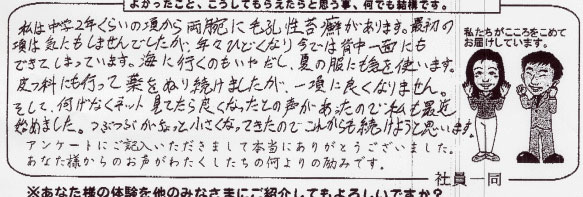 よかったこと、こうしてもらえたらと思う事、何でも結構です。
私は中学2年くらいの頃から両腕に毛孔性苔癬があります。最初の
頃は気にもしませんでしたが、年々ひどくなり今では背中一面にも
できてしまっています。海に行くのもいやだし、夏の服にも気を使います。
皮フ科にも行って薬をぬり続けましたが、一項に良くなりません。
そして、何げなくネット見てたら良くなったとの声があったので私も最近
始めました。つぶつぶがちょっと小さくなってきたのでこれからも続けようと思います。
アンケートにご記入いただきまして本当にありがとうございました。
あなた様からのお声がわたくしたちの何よりの励みです。
私たちがこころをこめて
お届けしています。
社員一同
※あなた様の体験を他のみなさまにご紹介してもよろしいですか？